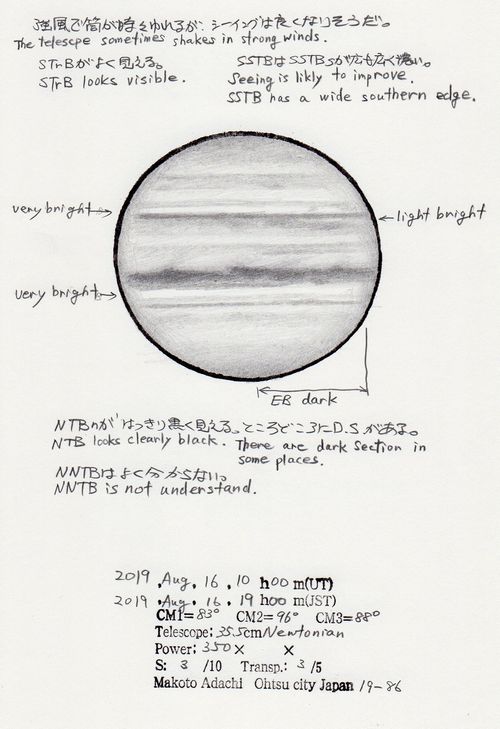 強風で筒が時々ゆれるが、シーイングは良くなりそうだ。
The telescpe sometimes shakes in strong winds.
STrBがよく見える。
STrB looks visible.
SSTBはSSTBsが広く濃い。
Seeing is likly to improve.
SSTB has a wide southern edge.
very bright
light bright
very bright
EB dark
NTBnがはっきり黒く見える。ところどころにD.Sがある。
NTB looks clearly black. There are dark section in
some places.
NNTBはよく分からない。
NNTB is not understand.
2019 .Aug. 16 . 10 h00 m(UT)
2019 .Aug. 16 . 19 h00 m(JST)
CM1=83° CM2=96° CM3=88°
Telescope:35.5cm Newtonian
Power:350× ×
S: 3 /10 Transp.: 3 /5
Makoto Adachi Ohtsu city Japan 19-86